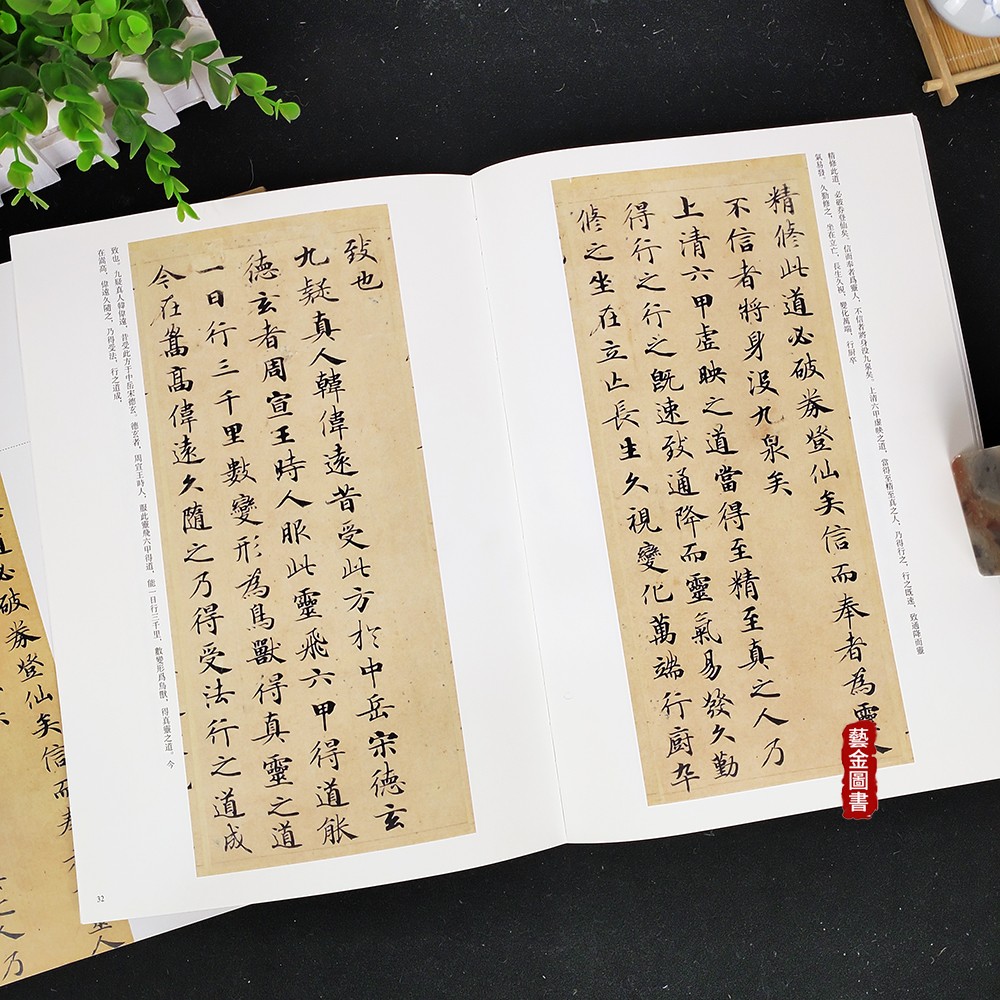 精修此道，必破券登仙矣。信而奉者爲靈人，不信者將身没九泉矣。上清六甲虛映之道，當得至精至真之人，乃得行之，行之既速，致通降而靈
氣易發。久勤修之，坐在立亡，長生久視，變化萬端，行厨卒
精脩此道必破券登仙矣信而奉者為靈人
不信者將身没九泉矣
上清六甲虛映之道當得至精至真之人乃
得行之行之既速致通降而靈氣易發久勤
脩之坐在立亡長生久視變化萬端行廚卒
藝金圖書
致也
九疑真人韓偉遠昔受此方於中岳宋德玄
德玄者周宣王時人服此靈飛六甲得道能
一日行三千里數變形為鳥獸得真靈之道
今在嵩高偉遠久隨之乃得受法行之道成
致也。九疑真人韓偉遠，昔受此方于中岳宋德玄。德玄者，周宣王時人，服此靈飛六甲得道，能一日行三千里，數變形爲鳥獸，得真靈之道。今
在嵩高，偉遠久隨之，乃得受法，行之道成，
32
道必破券登仙矣信而奉
靈人
之人乃